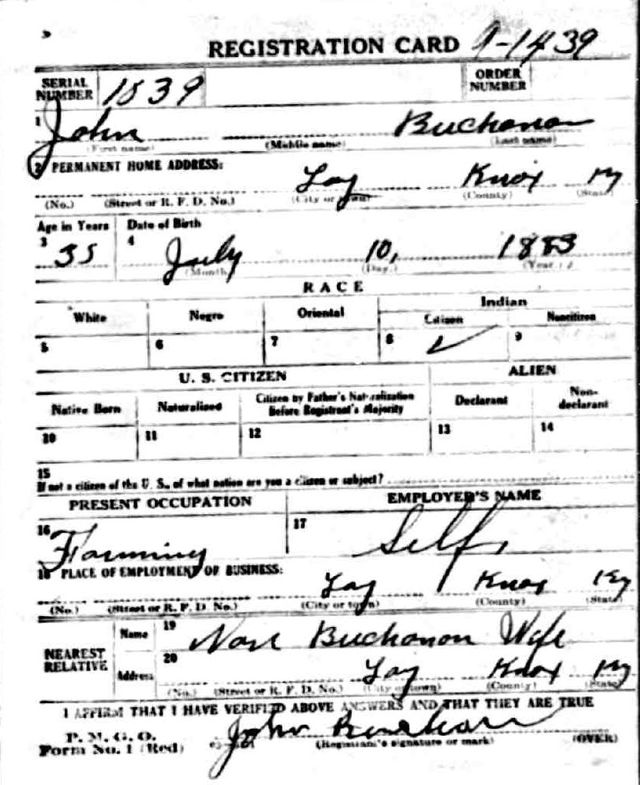 REGISTRATION CARD 9-1439
SERIAL NUMBER 1839 ORDER NUMBER
1 John Buchanan
(First name) (Middle name) (Last name)
2 PERMANENT HOME ADDRESS:
Lay Knox Ky
(No.) (Street or R. F. D. No.) (City or town) (County) (State)
Age in Years Date of Birth
3 35 4 July 10, 1883
(Month) (Day.) (Year.)
RACE
White Negro Oriental Indian
Citizen Noncitizen
5 6 7 8 ✓ 9
U. S. CITIZEN ALIEN
Native Born Naturalized Citizen by Father's Naturalization Before Registrant's Majority Declarant Non-declarant
10 11 12 13 14
15
If not a citizen of the U. S., of what nation are you a citizen or subject?
PRESENT OCCUPATION EMPLOYER'S NAME
16 Farming 17 Self
18 PLACE OF EMPLOYMENT OR BUSINESS:
Lay Knox Ky
(No.) (Street or R. F. D. No.) (City or town) (County) (State)
NEAREST RELATIVE Name 19 Buchanon Wife
Address 20 Lay Knox Ky
(No.) (Street or R. F. D. No.) (City or town) (County) (State)
I AFFIRM THAT I HAVE VERIFIED ABOVE ANSWERS AND THAT THEY ARE TRUE
P. M. G. O.
Form No. 1 (Red) John Buchanan
(Registrant's signature or mark) (OVER)